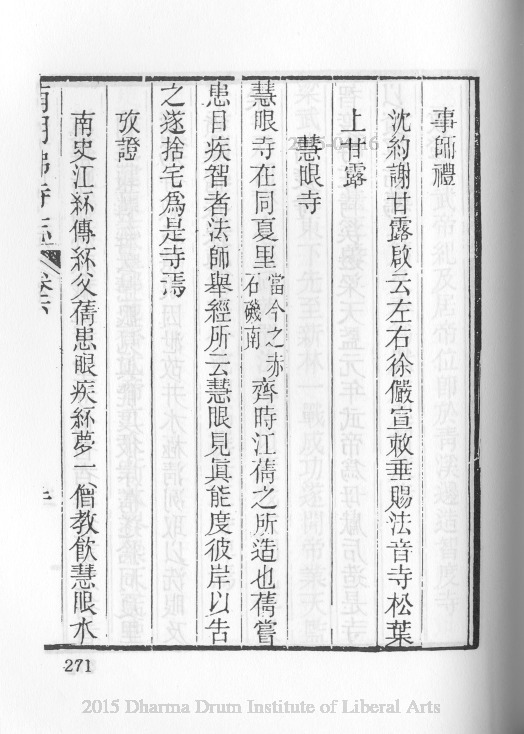 事師禮
沈約謝甘露啟云左右徐儼宣敕垂賜法音寺松葉
上甘露
慧眼寺
慧眼寺在同夏里當今之赤石磯南齊時江蒨之所造也蒨嘗
患目疾智者法師舉經所云慧眼見眞能度彼岸以告
之遂捨宅爲是寺焉
攷證
南史江紑傳紑父蒨患眼疾紑夢一僧教飮慧眼水
271
2015 Dharma Drum Institute of Liberal Arts